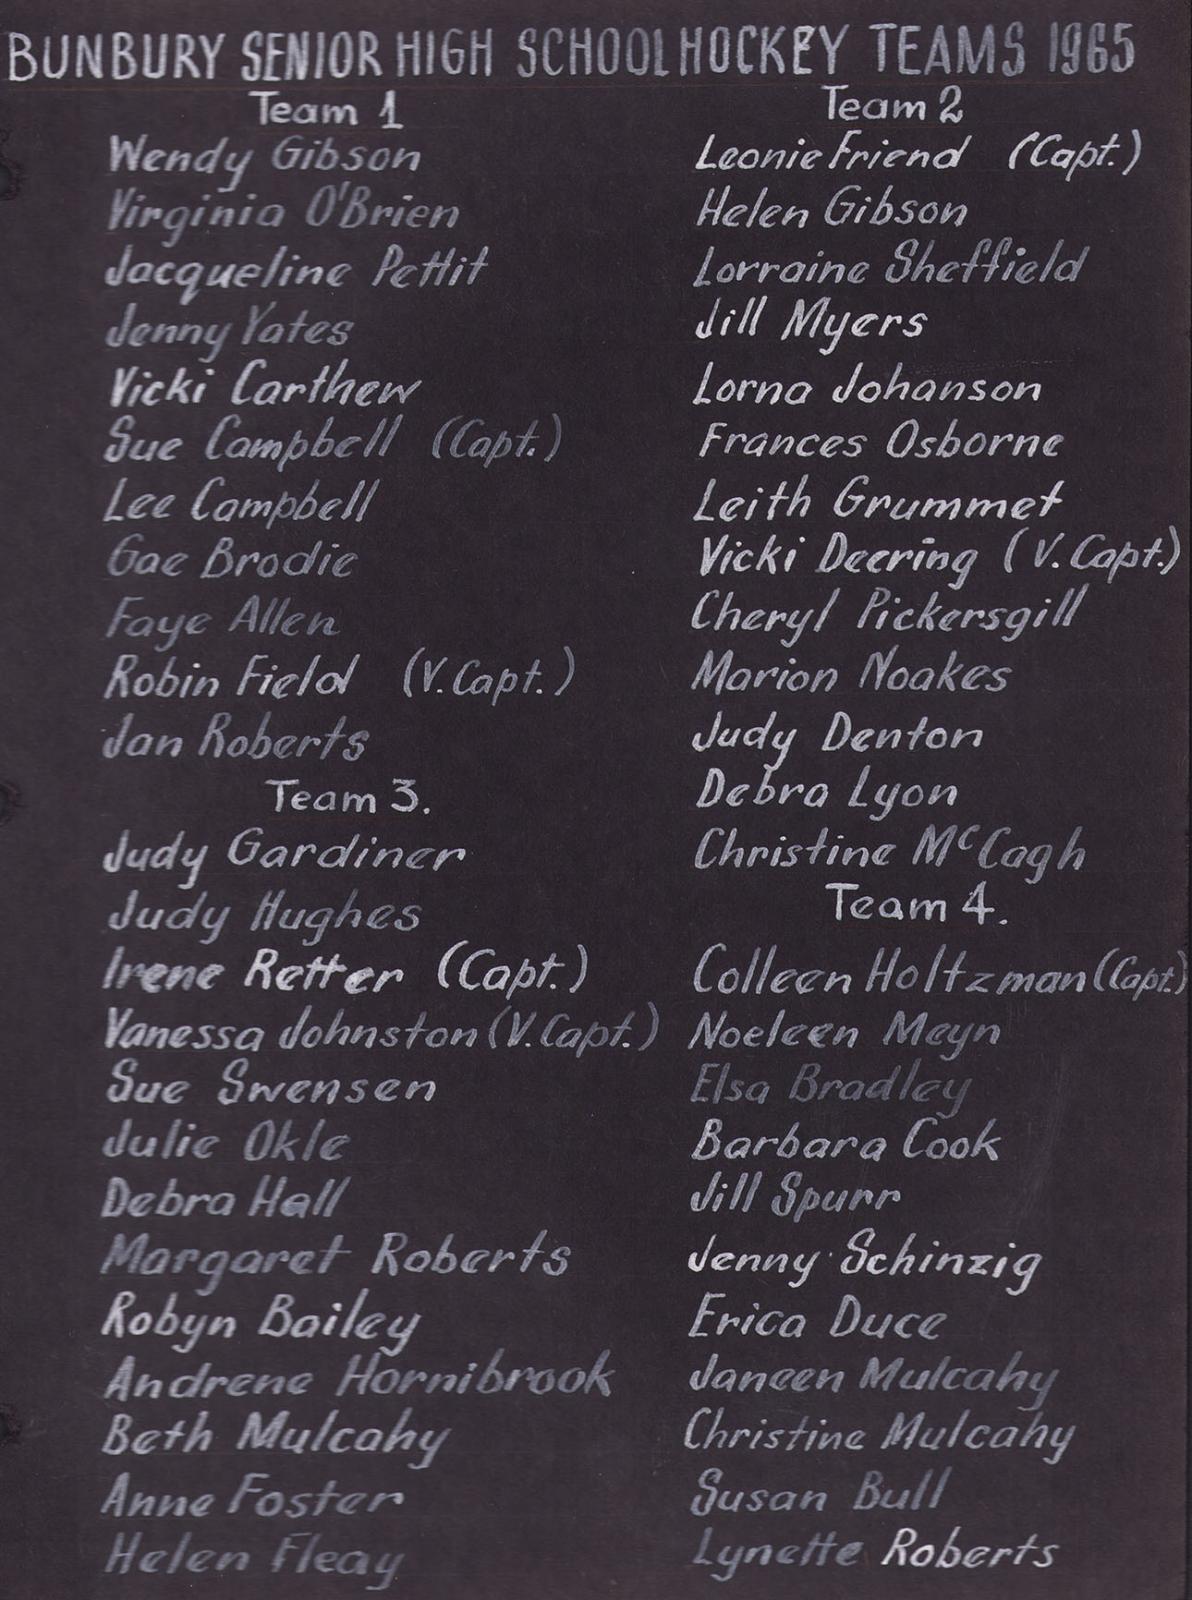 BUNBURY SENIOR HIGH SCHOOL HOCKEY TEAMS 1965
Team 1
Wendy Gibson
Virginia O'Brien
Jacqueline Pettit
Jenny Yates
Vicki Carthew
Sue Campbell (Capt.)
Lee Campbell
Gae Brodie
Faye Allen
Robin Field (V. Capt.)
Jan Roberts
Team 3.
Judy Gardiner
Judy Hughes
Irene Retter (Capt.)
Vanessa Johnston (V. Capt.)
Sue Swensen
Julie Okle
Debra Hall
Margaret Roberts
Robyn Bailey
Andrene Hornibrook
Beth Mulcahy
Anne Foster
Helen Fleay
Team 2
Leonie Friend (Capt.)
Helen Gibson
Lorraine Sheffield
Jill Myers
Lorna Johanson
Frances Osborne
Leith Grummet
Vicki Deering (V. Capt.)
Cheryl Pickersgill
Marion Noakes
Judy Denton
Debra Lyon
Christine McCagh
Team 4.
Colleen Holtzman (Capt.)
Noeleen Meyn
Elsa Bradley
Barbara Cook
Jill Spurr
Jenny Schinzig
Erica Duce
Janeen Mulcahy
Christine Mulcahy
Susan Bull
Lynette Roberts